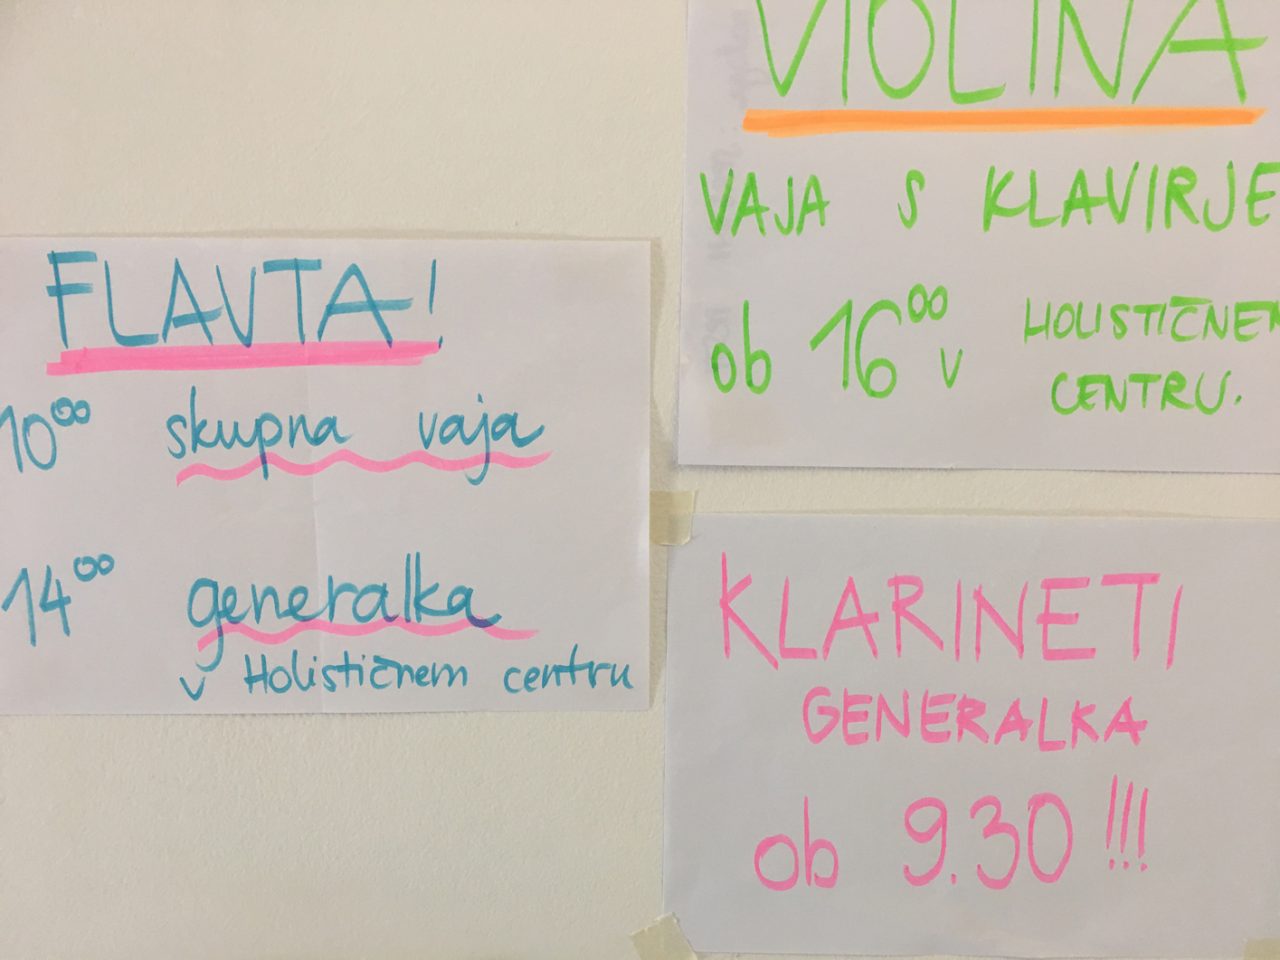 FLAVTA!
10⁰⁰ skupna vaja
14⁰⁰ generalka
v Holističnem centru
VIOLINA
VAJA S KLAVIRJE
ob 16⁰⁰ v HOLISTIČNEM
CENTRU.
KLARINETI
GENERALKA
ob 9.30 !!!